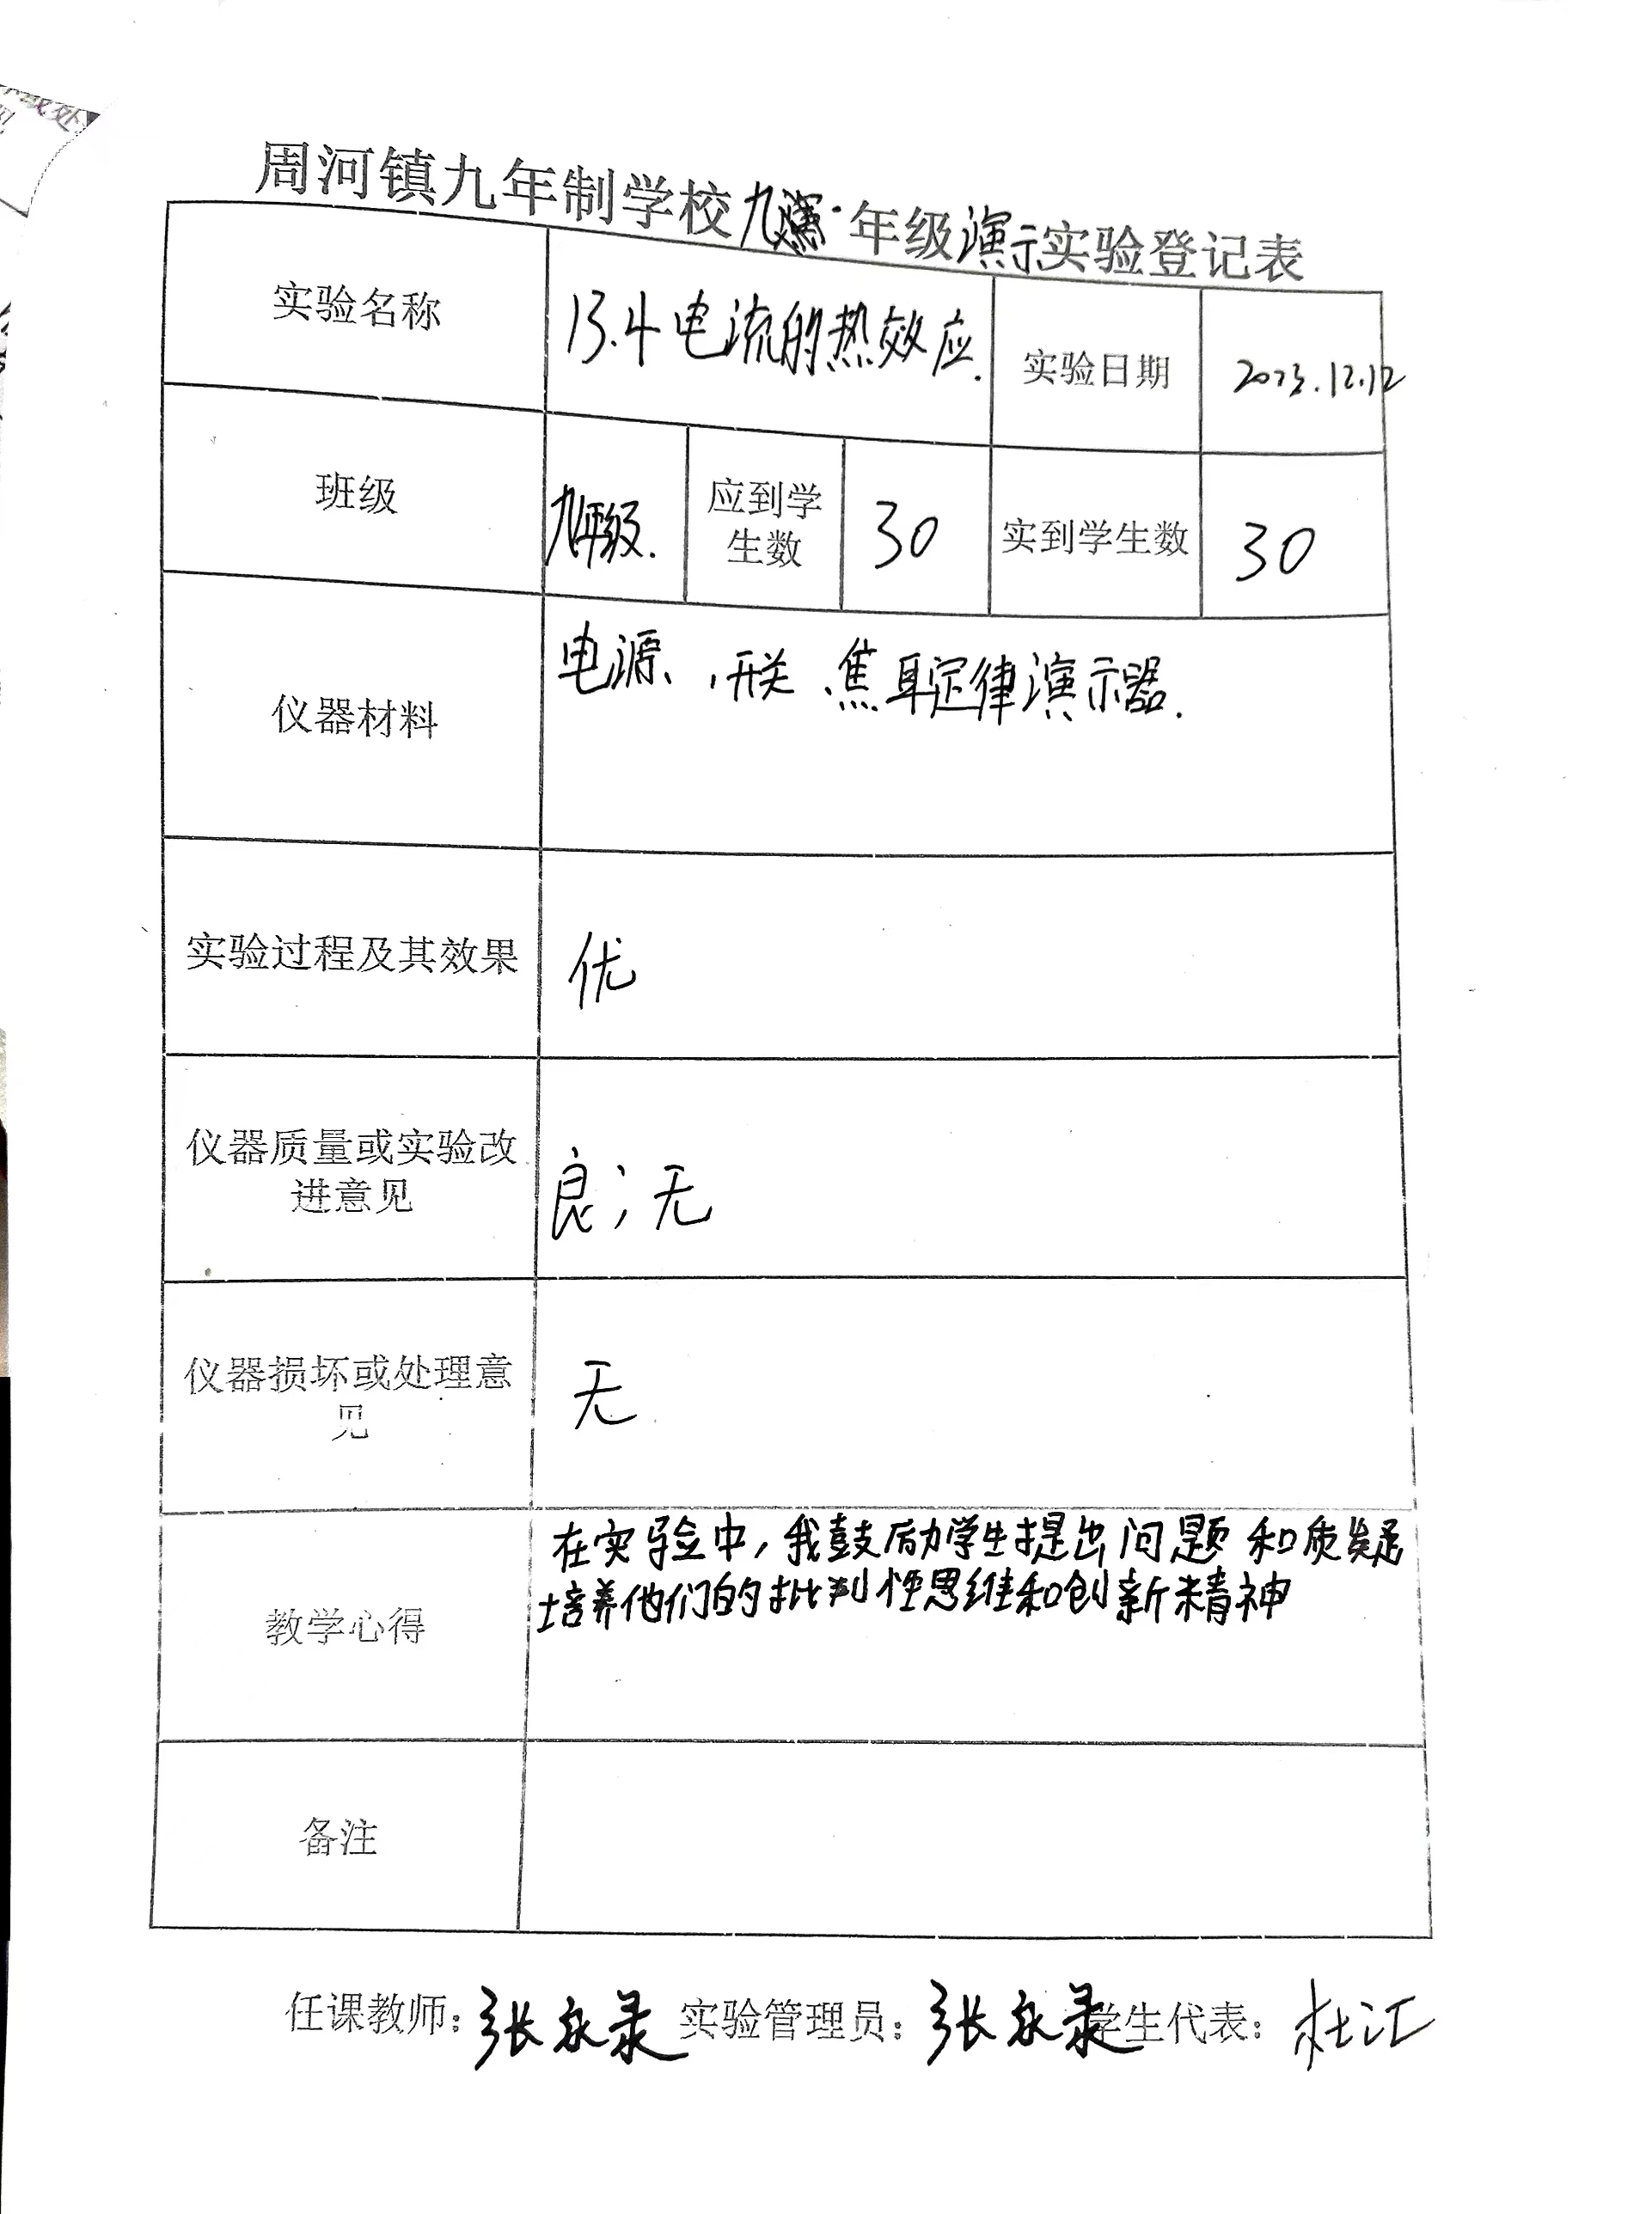 周河镇九年制学校九年级演示实验登记表
实验名称 13.4电流的热效应. 实验日期 2023.12.12
班级 九年级. 应到学生数 30 实到学生数 30
仪器材料 电源、,开关、焦耳定律演示器.
实验过程及其效果 优
仪器质量或实验改
进意见 良;无
仪器损坏或处理意
见 无
教学心得 在实验中,我鼓励学生提出问题和质疑
培养他们的批判性思维和创新精神
备注
任课教师:张永录 实验管理员:张永录 学生代表:杜江